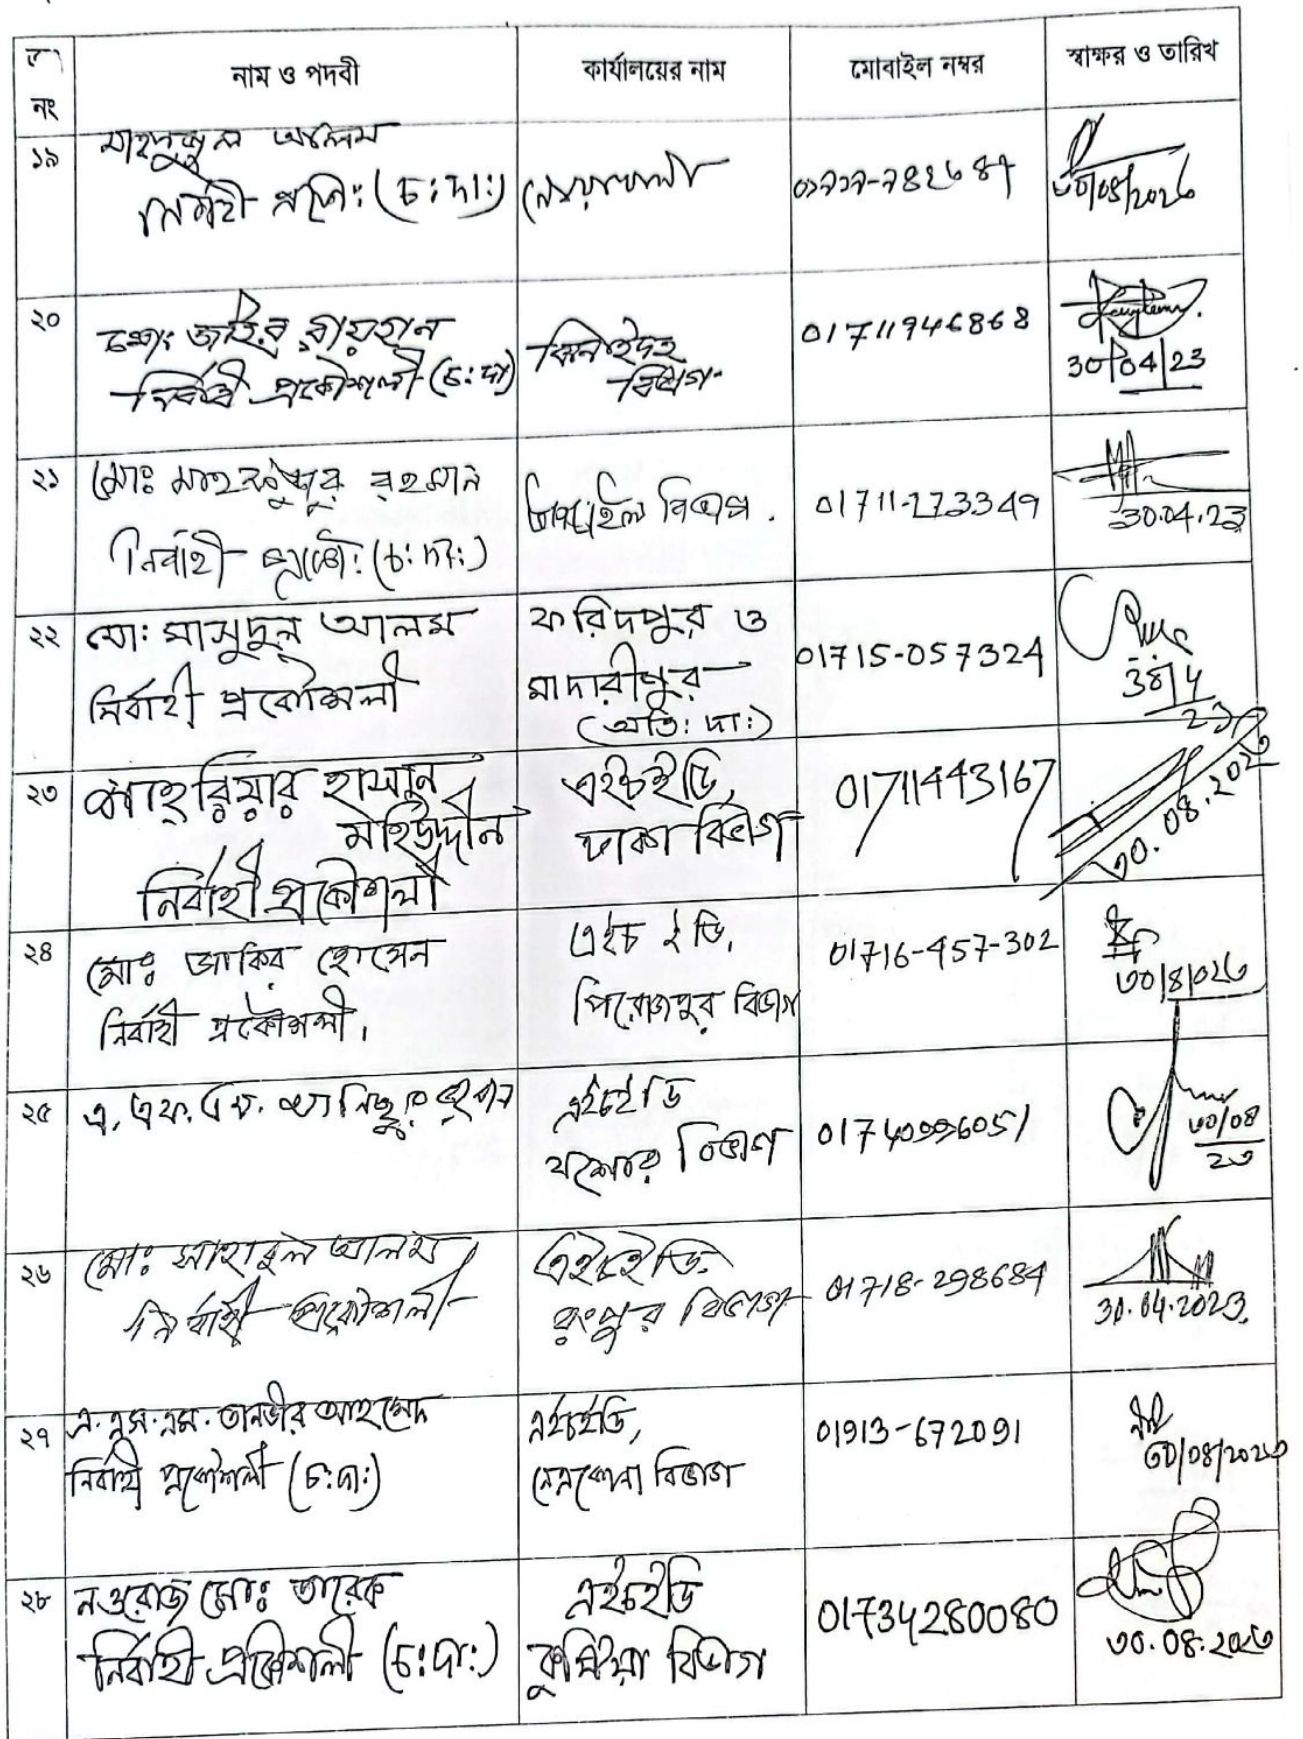 নং
নাম ও পদবী
কার্যালয়ের নাম
মোবাইল নম্বর
স্বাক্ষর ও তারিখ
১৯
আলম
নির্বাহী প্রকৌ: (চ:দা:)
নোয়াখালী
২০
মো: জহির রায়হান
নির্বাহী প্রকৌশলী (চ:দা)
ঝিনাইদহ
বিভাগ
01711946868
30/04/23
২১
মোঃ মাহফুজুর রহমান
নির্বাহী প্রকৌ: (চ:দা:)
টাঙ্গাইল বিভাগ.
01711-273349
30.04.23
২২
মো: মাসুদুল আলম
নির্বাহী প্রকৌশলী
ফরিদপুর ও
মাদারীপুর
(অতি: দা:)
01715-057324
২৩
শাহ্‌রিয়ার হাসান
মহিউদ্দীন
নির্বাহী প্রকৌশলী
এইচইডি,
ঢাকা বিভাগ
01711443167
৩০.০৪.২০২৩
২৪
মোঃ জাকির হোসেন
নির্বাহী প্রকৌশলী।
এইচ ই ডি,
পিরোজপুর বিভাগ
01716-457-302
৩০/৪/০২৩
২৫
এ, এফ. এম. আনিছুর রহমান
এইচইডি
যশোর বিভাগ
৩০/০৪
২৩
২৬
মোঃ আলম
নির্বাহী প্রকৌশলী
এইচইডি.
রংপুর বিভাগ
01718-298684
30.04.2023
২৭
এ.এস.এম. তানভীর আহমেদ
নির্বাহী প্রকৌশলী (চ:দা:)
এইচইডি,
নেত্রকোনা বিভাগ
01913-672091
৩০/০৪/২০২৩
২৮
নওরোজ মোঃ তারেক
নির্বাহী প্রকৌশলী (চ:দা:)
এইচইডি
কুমিল্লা বিভাগ
01734280080
৩০.০৪.২০২৩